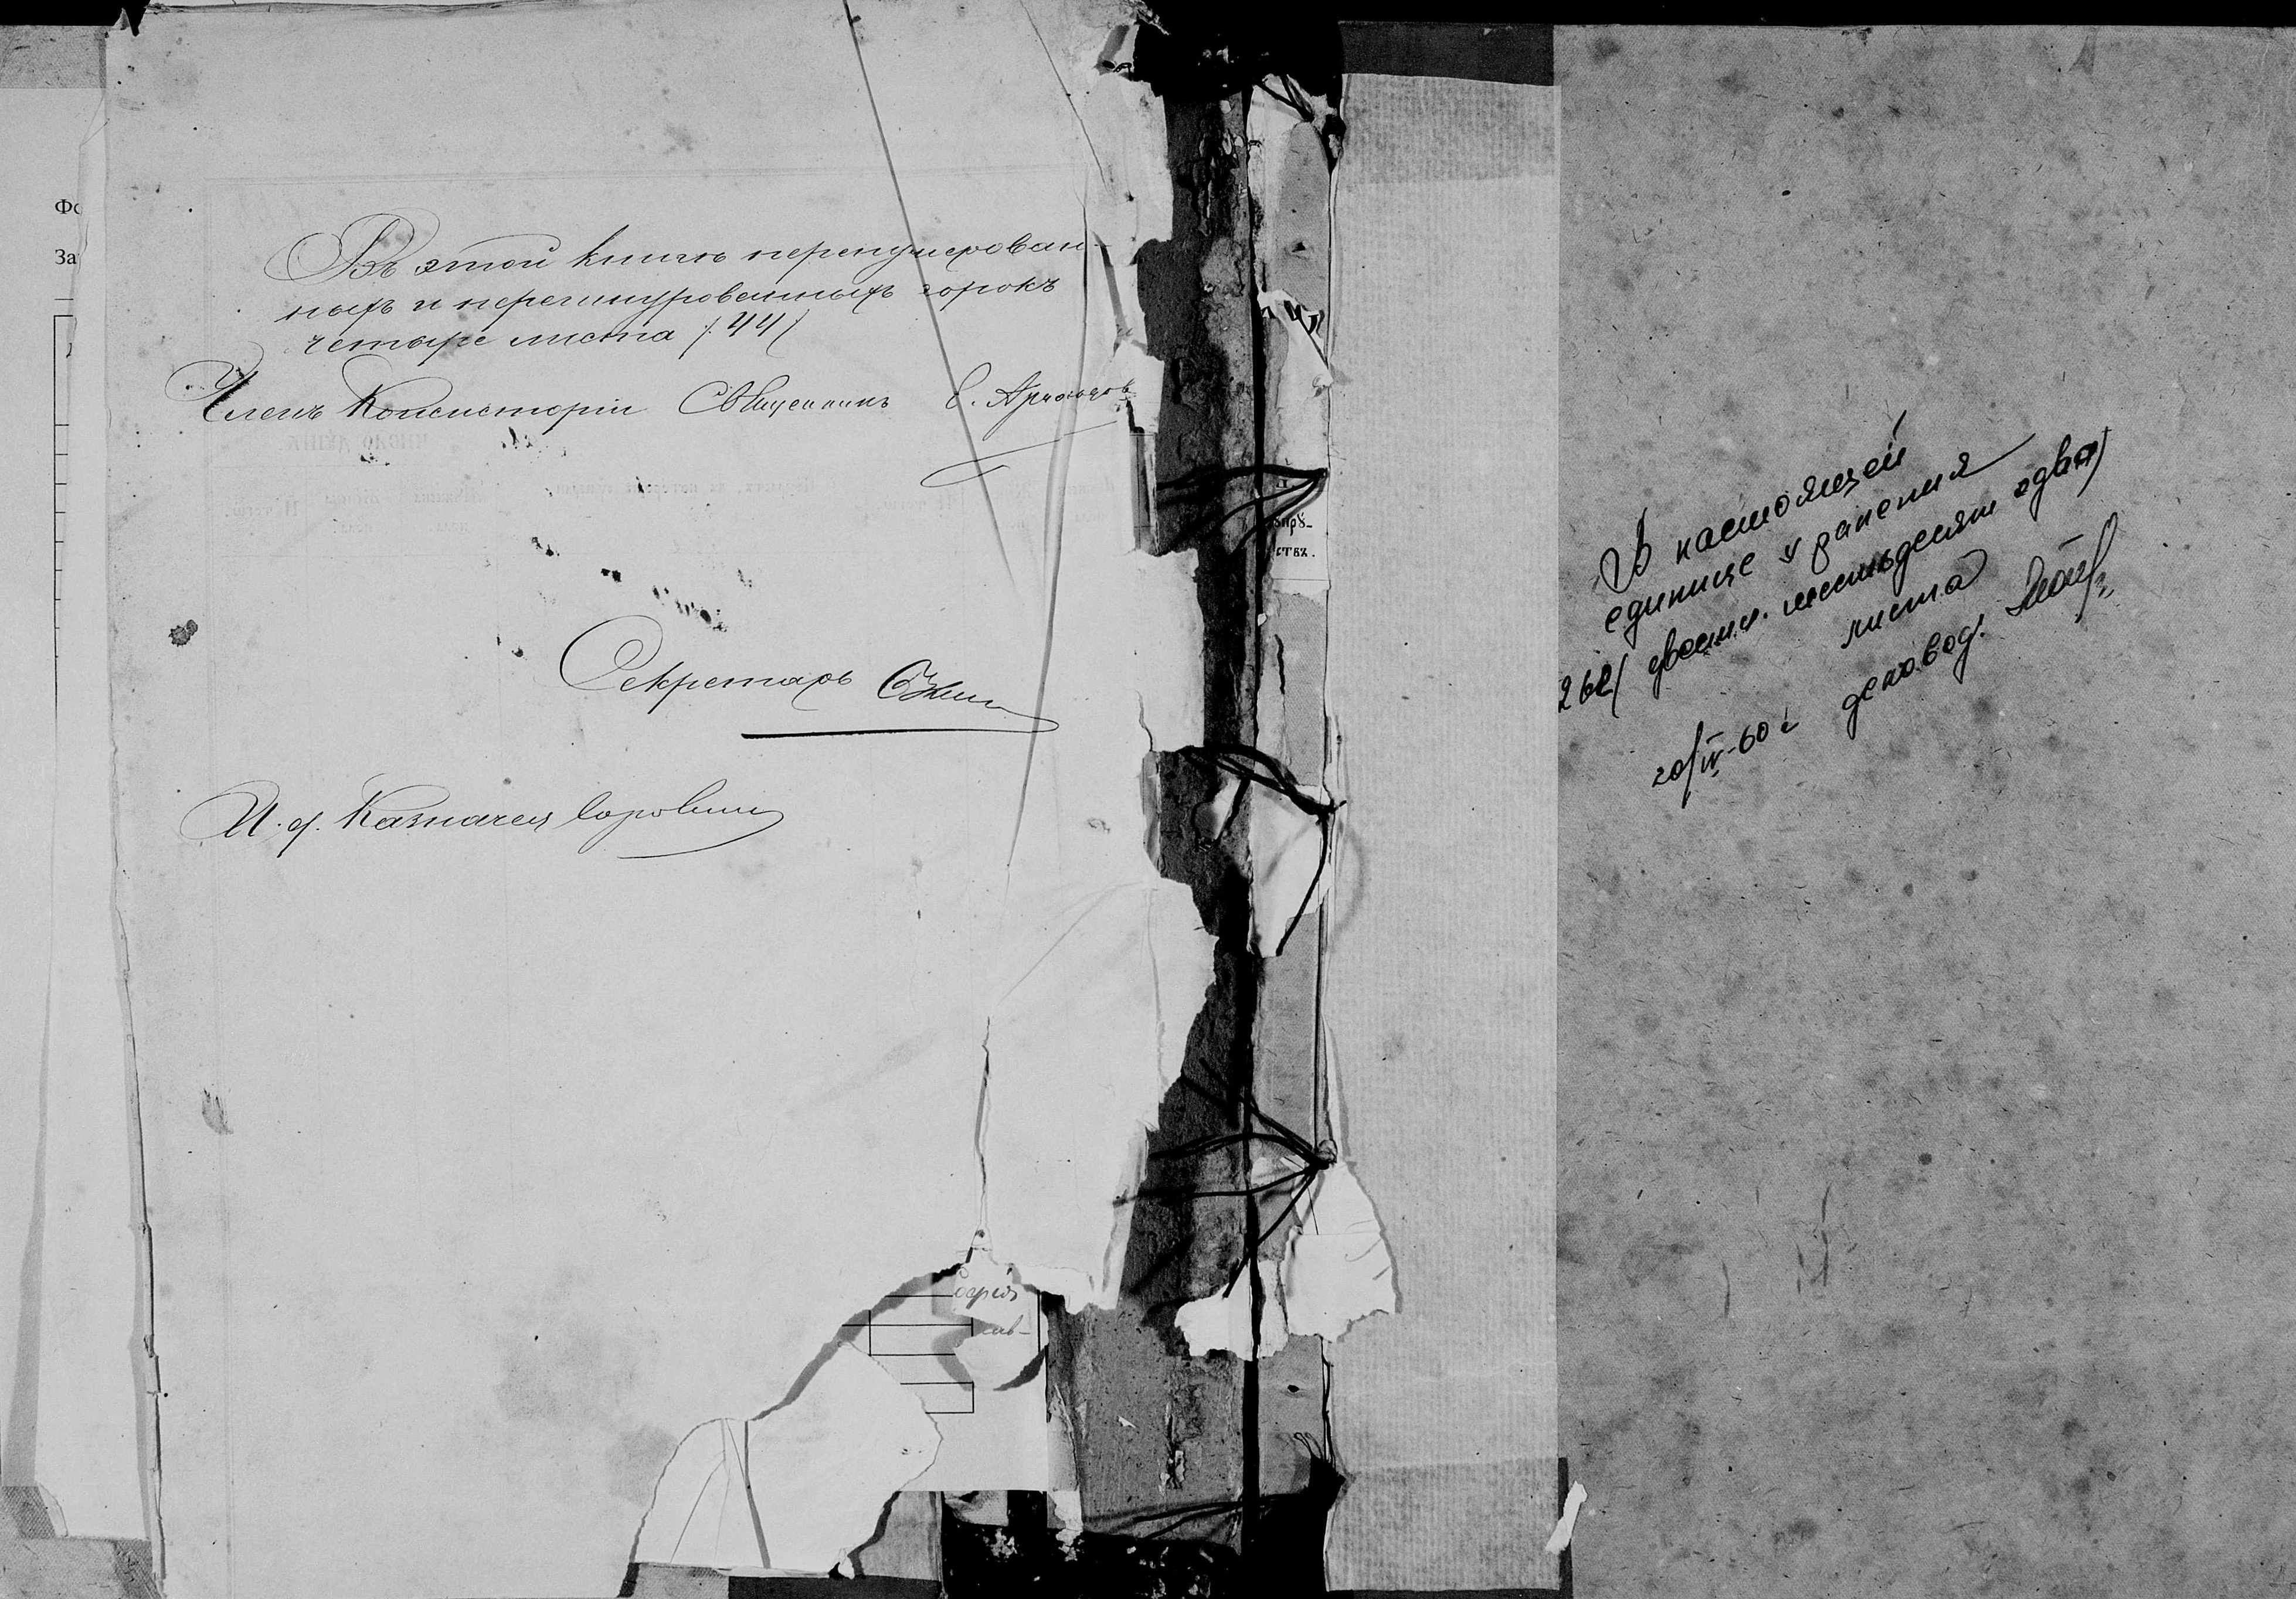 Фо
За
Въ этой книгѣ перенумерован-
ныхъ и перешнурованныхъ сорокъ
четыре листа /44/
Членъ Консисторіи Священникъ С.
Секретарь
И. д. Казначея
упру-
ствъ.
В настоящей
единице хранения
262/ двести шестьдесят два/
листа
20/IV-60 г деловод.